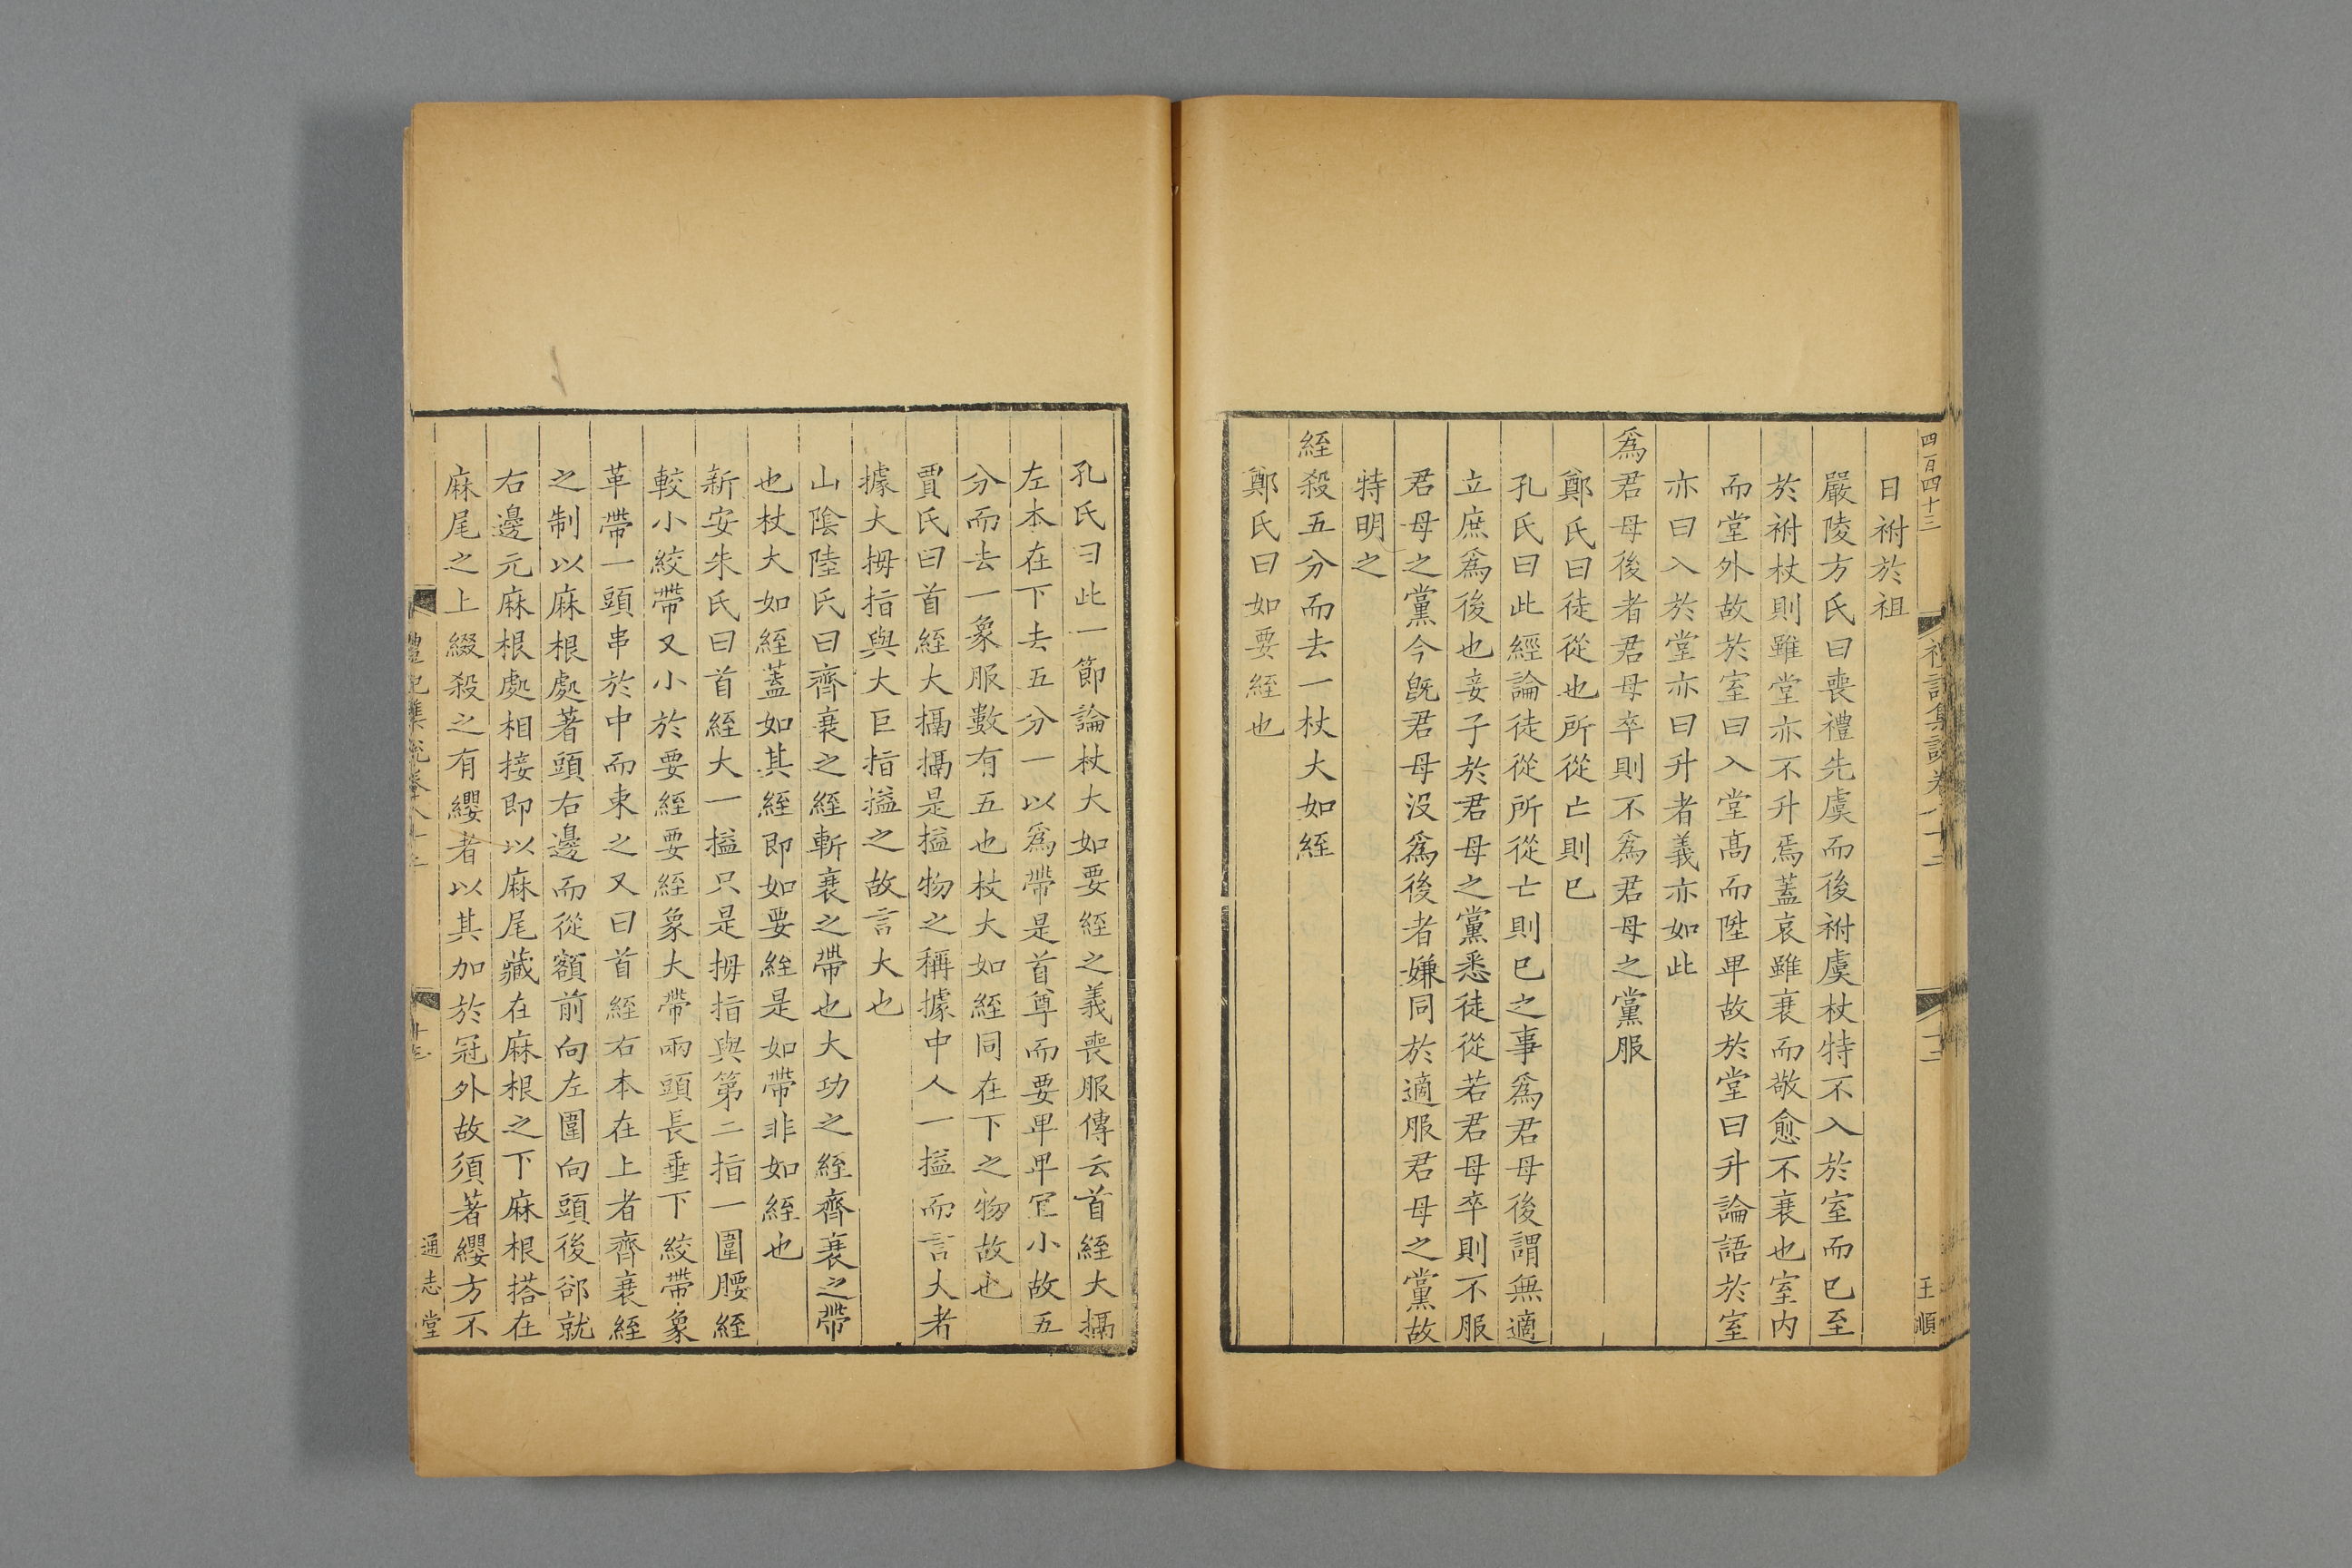 四百四十三
王順
日祔於祖
嚴陵方氏曰喪禮先虞而後祔虞杖特不入於室而已至
於祔杖則雖堂亦不升焉蓋哀雖衰而敬愈不衰也室內
而堂外故於室曰入堂高而陞卑故於堂曰升論語於室
亦曰入於堂亦曰升者義亦如此
爲君母後者君母卒則不爲君母之黨服
鄭氏曰徒從也所從亡則已
孔氏曰此經論徒從所從亡則已之事爲君母後謂無適
立庶爲後也妾子於君母之黨悉徒從若君母卒則不服
君母之黨今旣君母沒爲後者嫌同於適服君母之黨故
特明之
絰殺五分而去一杖大如絰
鄭氏曰如要絰也
孔氏曰此一節論杖大如要絰之義喪服傳云首絰大搹
左本在下去五分一以爲帶是首尊而要卑卑宜小故五
分而去一象服數有五也杖大如絰同在下之物故也
賈氏曰首絰大搹搹是搤物之稱據中人一搤而言大者
據大拇指與大巨指搤之故言大也
山陰陸氏曰齊衰之絰斬衰之帶也大功之絰齊衰之帶
也杖大如絰蓋如其絰即如要絰是如帶非如絰也
新安朱氏曰首絰大一搤只是拇指與第二指一圍腰絰
較小絞帶又小於要絰要絰象大帶兩頭長垂下絞帶象
革帶一頭串於中而束之又曰首絰右本在上者齊衰絰
之制以麻根處著頭右邊而從額前向左圍向頭後卻就
右邊元麻根處相接即以麻尾藏在麻根之下麻根搭在
麻尾之上綴殺之有纓者以其加於冠外故須著纓方不
通志堂